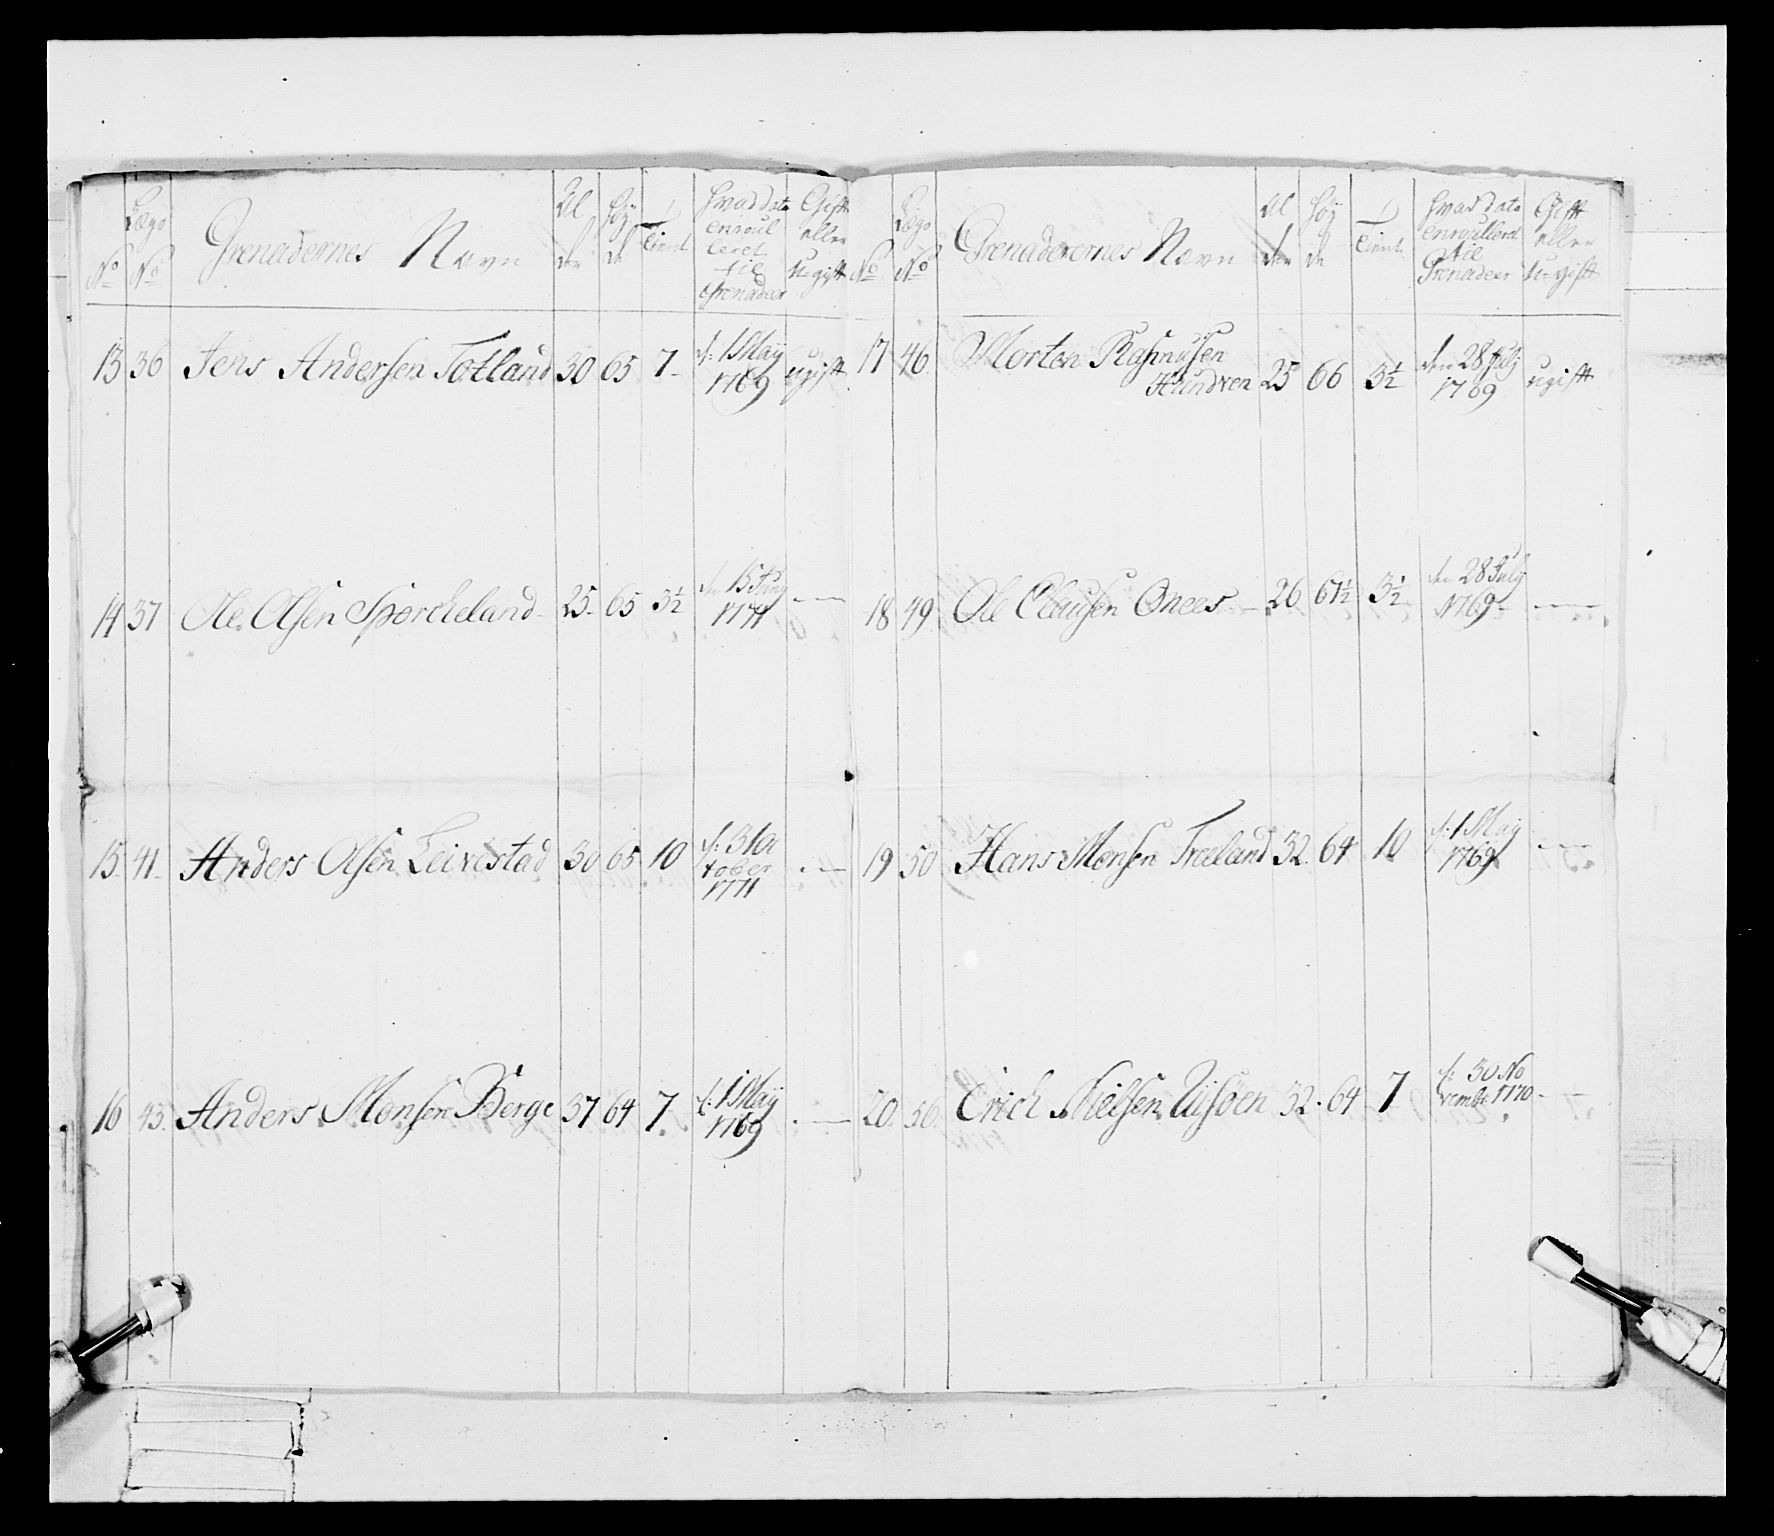 No
Lægs No
Grenadernes Navn
Al der
Høy de
Tient
Hvad dato enroul leret til Grenadeer
Gift eller U-gift
13 36 Jens Andersen Totland 30 65 7 d: 1 Maÿ 1769 ugift
14 37 Ole Olsen Sporcheland 25 65 3½ 1771 —
15 41 Anders Olsen Leirestad 30 65 10 d: 31 Oc tober 1771 —
16 45 Anders Monsen Berge 37 64 7 d: 1 Maÿ 1769 —
No
Lægs No
Grenaderernes Navn
Al der
Høy de
Tient
Hvad dato enroulleret til Grenadeer
Gift eller U-gift
17 46 Morten Rasmusen
Hundven 25 66 3½ den 28 July 1769 ugift
18 49 Ole Clausen Onees 26 67½ 3½ den 28 July 1769 —
19 50 Hans Monsen Træland 32 64 10 d: 1 Maÿ 1769 —
20 56 Erich Nielsen 32 64 7 d: 30 No vembr 1770 —